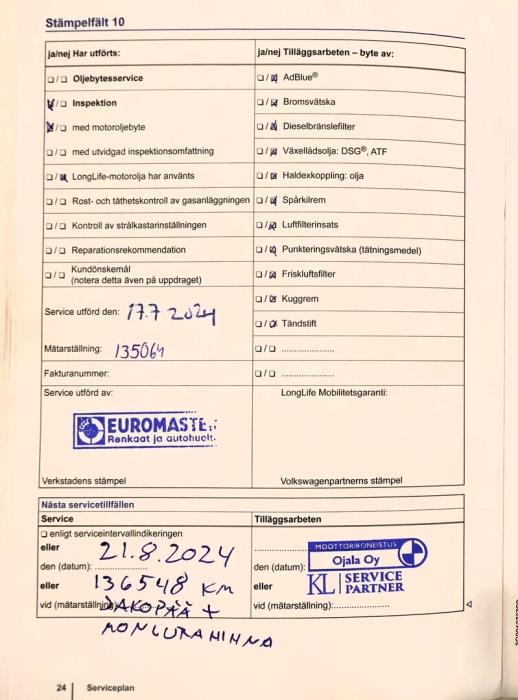 Stämpelfält 10
ja/nej Har utförts:
ja/nej Tilläggsarbeten – byte av:
Oljebytesservice
AdBlue®
Inspektion
Bromsvätska
med motoroljebyte
Dieselbränslefilter
med utvidgad inspektionsomfattning
Växellådsolja: DSG®, ATF
LongLife-motorolja har använts
Haldexkoppling: olja
Rost- och täthetskontroll av gasanläggningen
Spårkilrem
Kontroll av strålkastarinställningen
Luftfilterinsats
Reparationsrekommendation
Punkteringsvätska (tätningsmedel)
Kundönskemål
(notera detta även på uppdraget)
Friskluftsfilter
Kuggrem
Service utförd den: 17.7 2024
Tändstift
Mätarställning: 135064
Fakturanummer:
Service utförd av:
LongLife Mobilitetsgaranti:
EUROMASTE
Renkaat ja autohuolt.
Verkstadens stämpel
Volkswagenpartnerns stämpel
Nästa servicetillfällen
Service
Tilläggsarbeten
enligt serviceintervallindikeringen
eller
21.8.2024
den (datum):
MOOTTORIKONEISTUS
Ojala Oy
den (datum):
KL SERVICE PARTNER
eller
136548 KM
eller
vid (mätarställning) JAKOPÄÄ +
vid (mätarställning):
24 Serviceplan